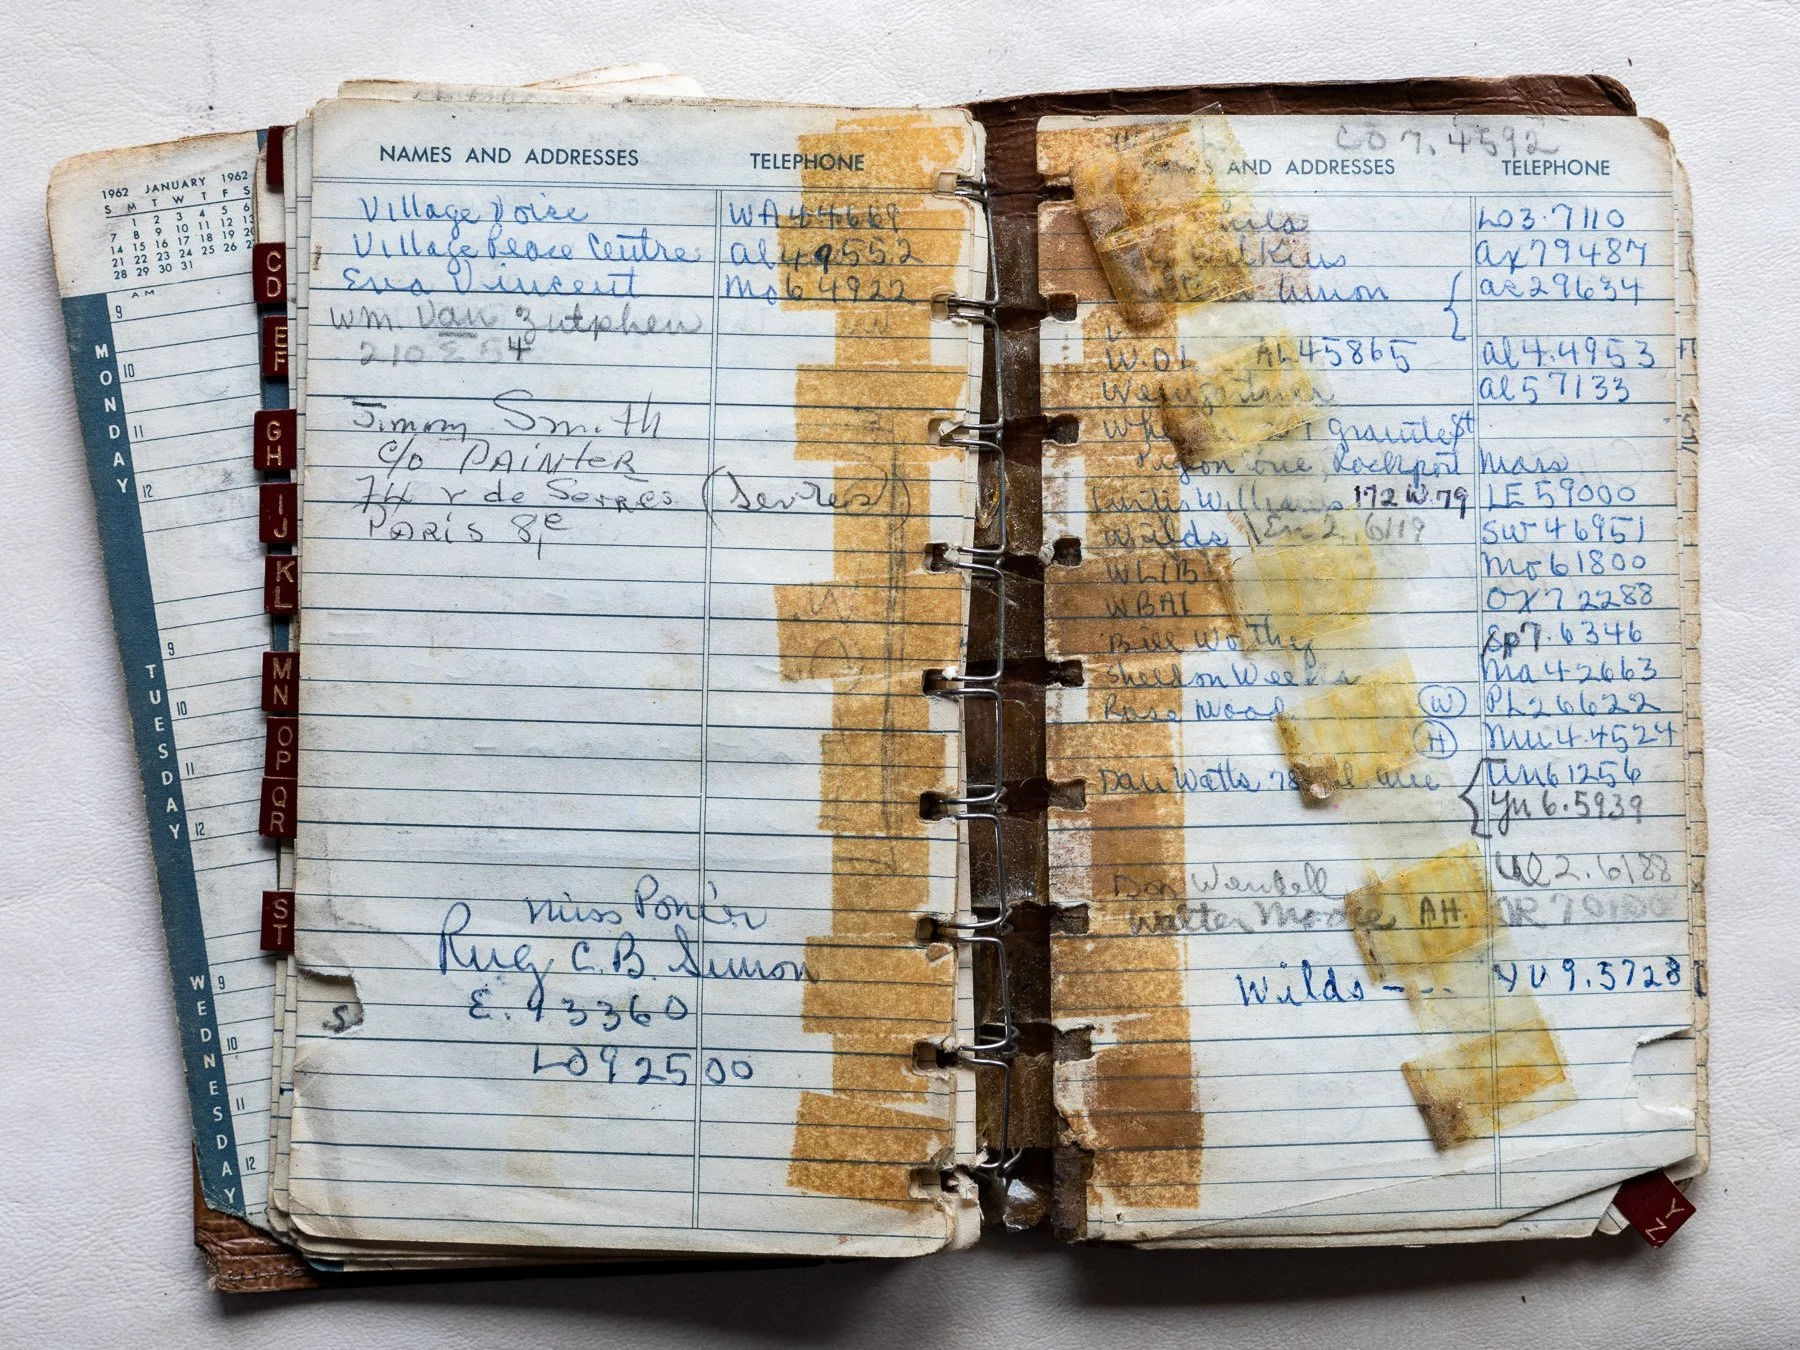 1962 JANUARY 1962
S M T W T F S
1 2 3 4 5 6
7 8 9 10 11 12 13
14 15 16 17 18 19 20
21 22 23 24 25 26
28 29 30 31
AM
9
MONDAY
10
11
12
9
TUESDAY
10
11
12
9
WEDNESDAY
10
11
12
CD
EF
GH
IJ
KL
MN
OP
QR
ST
NAMES AND ADDRESSES TELEPHONE
Village Voice WA44669
Village Peace Centre al49552
Eva Vincent Mo64922
Wm. Van Zutphen
210 E 54
Jimmy Smith
c/o PAINTER
74 r de Serres (Sevres)
PARIS 8e
Miss
Rug C.B. Simon
E. 93360
LO92500
S
CO 7. 4592
AND ADDRESSES TELEPHONE
LO3.7110
Wilkins ax79487
Union ac29634
W.D.L AL45865 al4.4953
al57133
Granite St
Pigeon Cove, Rockport Mass.
Curtis Williams 172 W. 79 LE59000
Wilds En2.6119 SW46951
WLIB Mo61800
WBAI OX72288
Bill Worthy 7.6346
Sheldon Weeks Ma42663
Rose Wood W PL26622
H Mu4.4524
Dan Watts 78 ave Un61256
Yu6.5939
Don Wendell 2.6188
Walter Moore AH. OR
Wilds --- YU9.5728
YZ